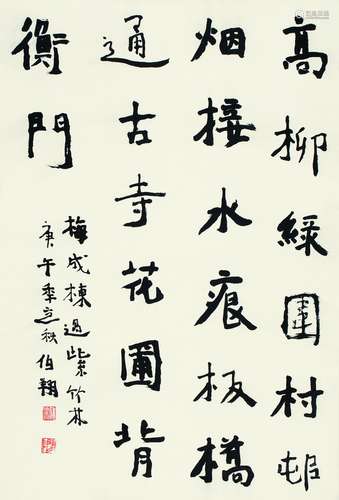 高柳綠圍村
烟接水痕板橋
通古寺花圃背
衡門
梅成棟過紫竹林
庚午秊之秋伯翔